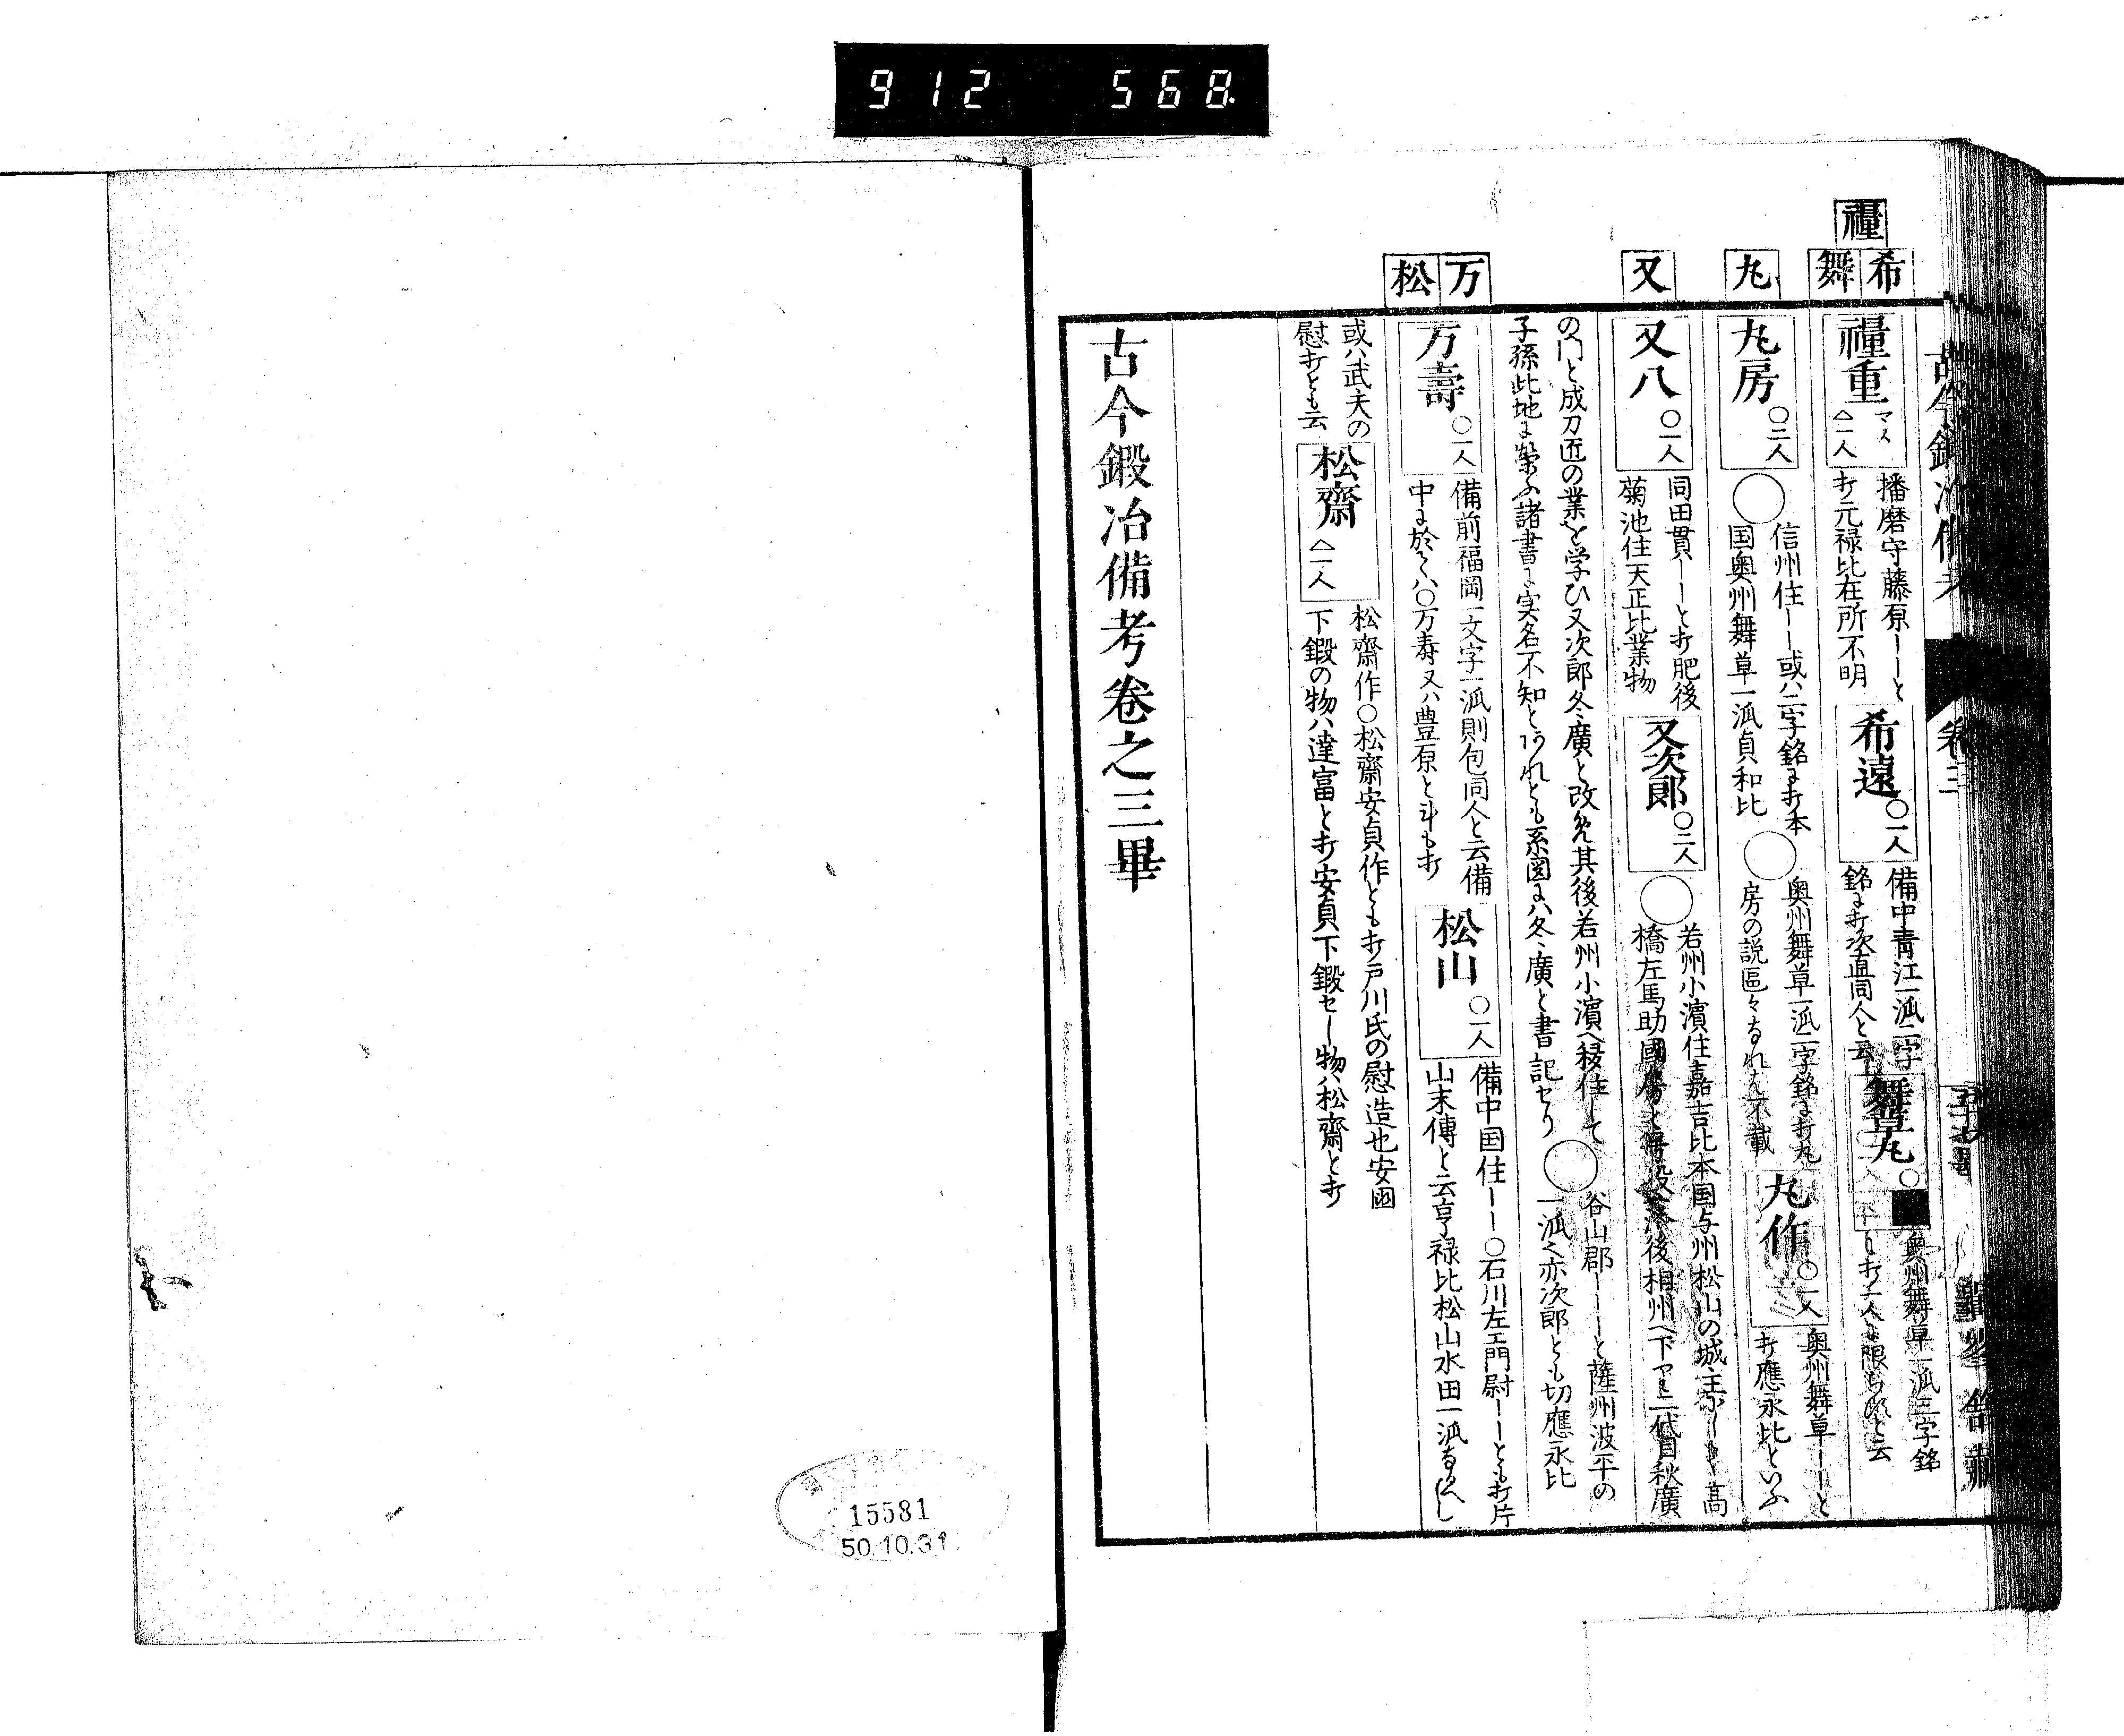 912 568
禋
希
舞
丸
又
万
松
禋重 マス △一人
播磨守藤原ーーと
打元禄比在所不明
希遠 〇一人
備中青江一派二字
銘ニ打次直同人と云
奥州舞草一派三字銘
丸房 〇二人
信州住ーー或ハ二字銘ニ打本
国奥州舞草一派貞和比
奥州舞草一派二字銘ニ打丸
房の説區々なれは不載
丸作 〇一人
奥州舞草ーーと
打應永比といふ
又八 〇一人
同田貫ーーと打肥後
菊池住天正比業物
又次郎 〇二人
若州小濱住嘉吉比本国与州松山の城主
橋左馬助國 後相州ヘ下 二代目秋廣
の門と成刀匠の業を学ひ又次郎冬廣と改め其後若州小濱ヘ移住して
子孫此地ニ榮ふ諸書ニ実名不知とあれとも系図ニハ冬廣と書記セり
谷山郡ーーーと薩州波平の
一派之亦次郎とも切應永比
万壽 〇一人
備前福岡一文字一派則包同人と云備
中ニ於てハ〇万寿又ハ豊原と斗も打
松山 〇一人
備中国住ーー〇石川左エ門尉ーーとも打片
山末傳と云享禄比松山水田一派なるへし
或ハ武夫の
慰打とも云
松齋 △一人
松齋作〇松齋安貞作とも打戸川氏の慰造也安国
下鍛の物ハ達富と打安貞下鍛セし物ハ松齋と打
古今鍛冶備考卷之三畢
15581
50.10.31